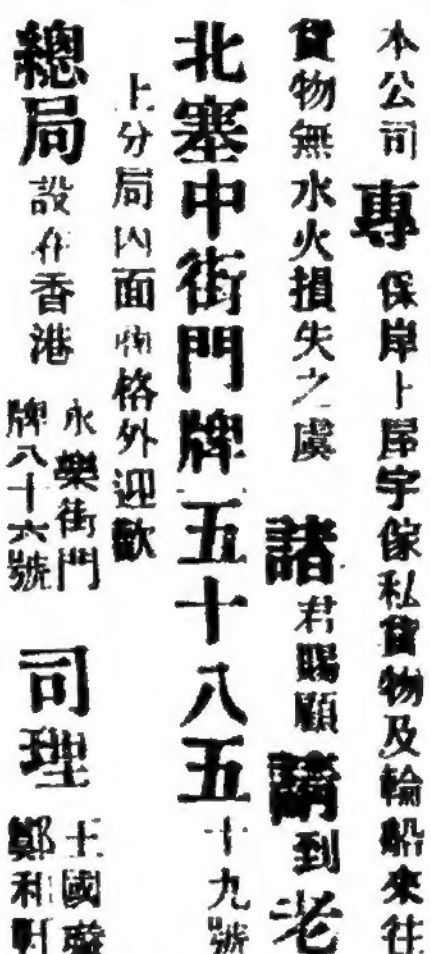 本公司專保岸上屋宇傢私貨物及輪船來往
貨物無水火損失之虞諸君賜顧請到老
北塞中街門牌五十八五十九號
上分局內面格外迎歡
總局設在香港
永樂街門
牌八十六號
司理
王國
鄭利